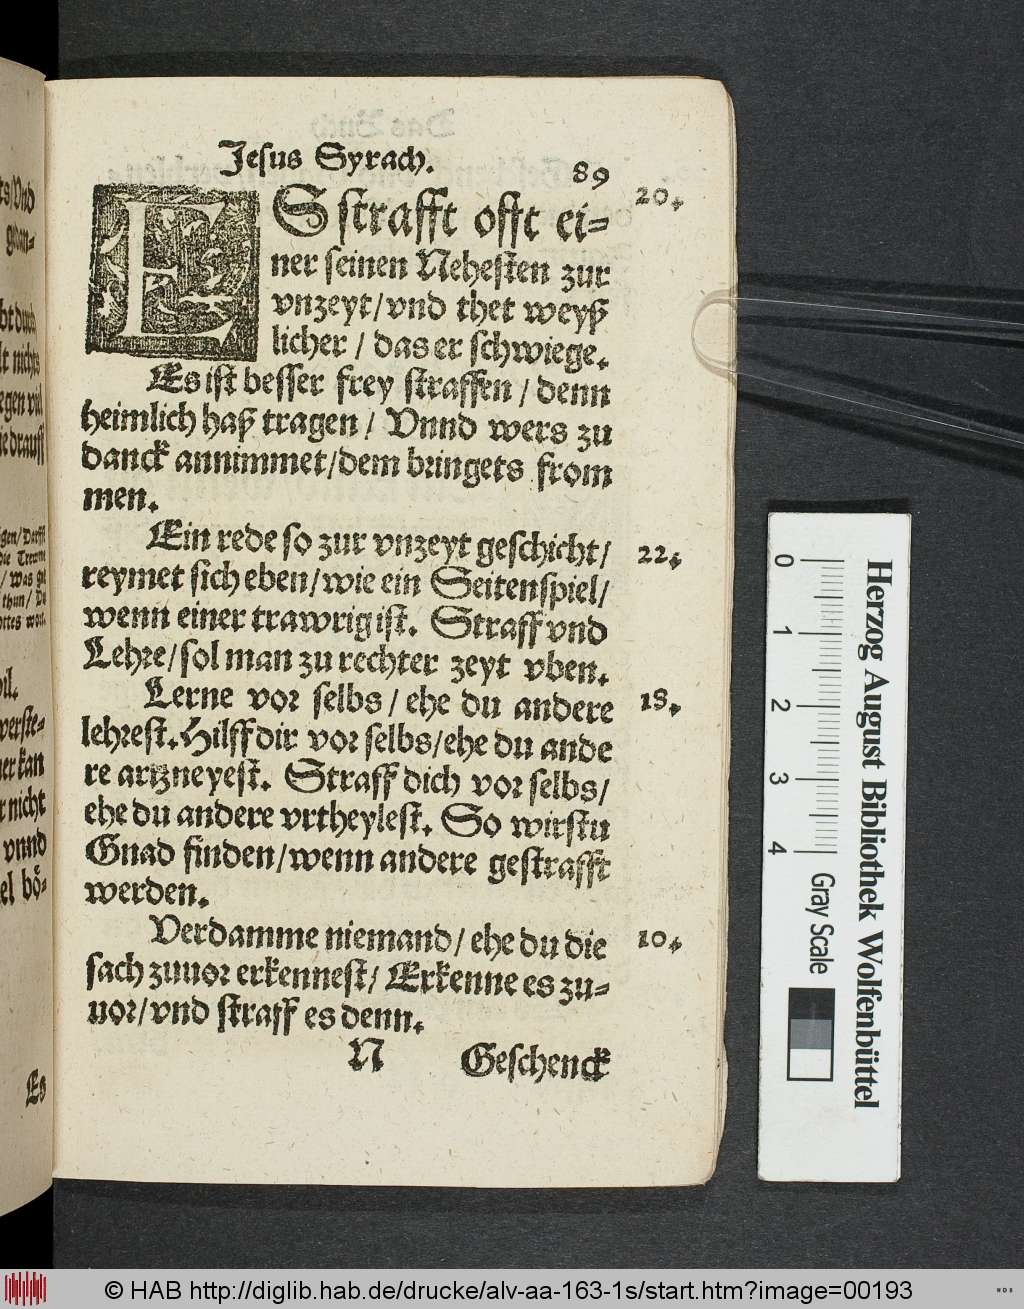 Jesus Syrach.
89
ES strafft offt ei=
ner seinen Nehesten zur
vnzeyt/vnd thet weyß
licher / das er schwiege.
20.
Es ist besser frey straffen / denn
heimlich haß tragen / Vnnd wers zu
danck annimmet/dem bringets from
men.
Ein rede so zur vnzeyt geschicht/
22.
reymet sich eben/wie ein Seitenspiel/
wenn einer trawrig ist. Straff vnd
Lehre/sol man zu rechter zeyt vben.
Lerne vor selbs / ehe du andere
18.
lehrest. Hilff dir vor selbs/ehe du ande
re artzneyest. Straff dich vor selbs/
ehe du andere vrtheylest. So wirstu
Gnad finden/wenn andere gestrafft
werden.
Verdamme niemand/ ehe du die
10.
sach zuuor erkennest/ Erkenne es zu=
uor/vnd straff es denn.
N
Geschenck
nichts
verste=
er kan
nicht
vnnd
bö=
Es
0 1 2 3 4
Gray Scale
Herzog August Bibliothek Wolfenbüttel
© HAB http://diglib.hab.de/drucke/alv-aa-163-1s/start.htm?image=00193